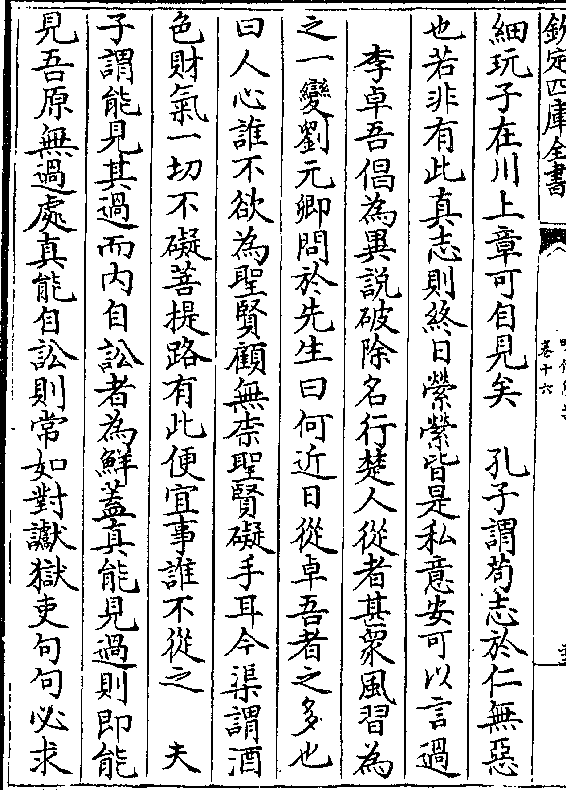 欽定四庫全書
卷十六
細玩子在川上章可自見矣　孔子謂苟志於仁無惡
也若非有此真志則終日縈縈皆是私意安可以言過
李卓吾倡為異說破除名行楚人從者甚衆風習為
之一變劉元卿問於先生曰何近日從卓吾者之多也
曰人心誰不欲為聖賢顧無柰聖賢礙手耳今渠謂酒
色財氣一切不礙菩提路有此便宜事誰不從之　夫
子謂能見其過而內自訟者為鮮葢真能見過則即能
見吾原無過處真能自訟則常如對讞獄吏句句必求